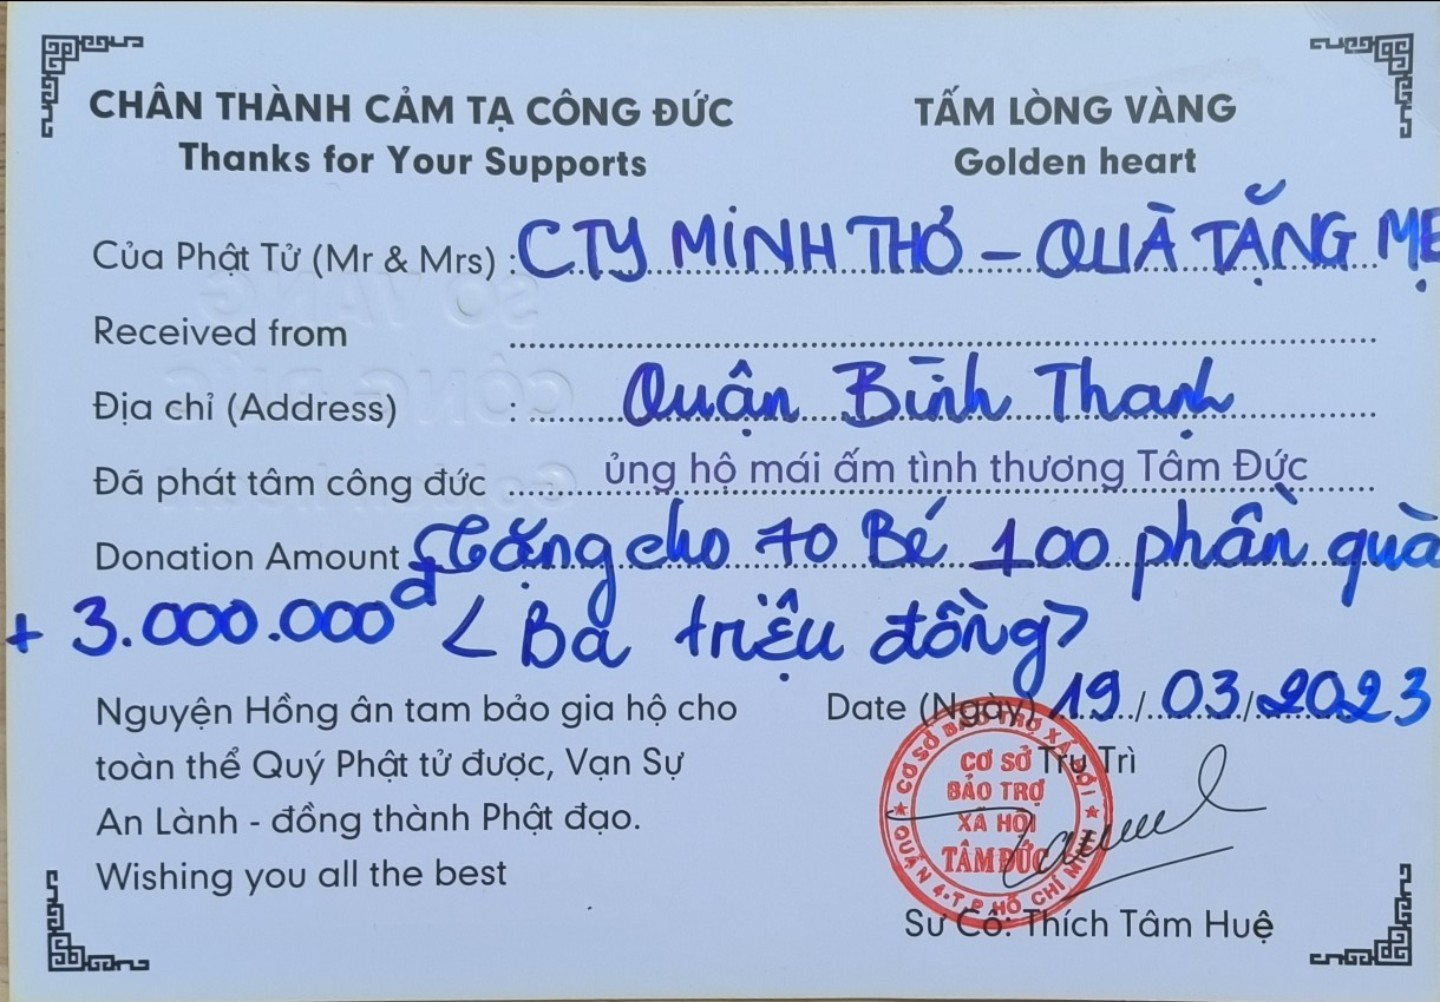 CHÂN THÀNH CẢM TẠ CÔNG ĐỨC
Thanks for Your Supports
TẤM LÒNG VÀNG
Golden heart
Của Phật Tử (Mr & Mrs) : CTY MINH THỎ – QUÀ TẶNG MẸ
Received from
Địa chỉ (Address) : Quận Bình Thạnh
Đã phát tâm công đức ủng hộ mái ấm tình thương Tâm Đức
Donation Amount Tặng cho 70 Bé 100 phần quà
+ 3.000.000đ < Ba triệu đồng >
Nguyện Hồng ân tam bảo gia hộ cho
toàn thể Quý Phật tử được, Vạn Sự
An Lành - đồng thành Phật đạo.
Wishing you all the best
Date (Ngày) 19/03/2023
Trụ Trì
CƠ SỞ BẢO TRỢ XÃ HỘI
QUẬN 4-T.P HỒ CHÍ MINH
CƠ SỞ
BẢO TRỢ
XÃ HỘI
TÂM ĐỨC
Sư Cô: Thích Tâm Huệ